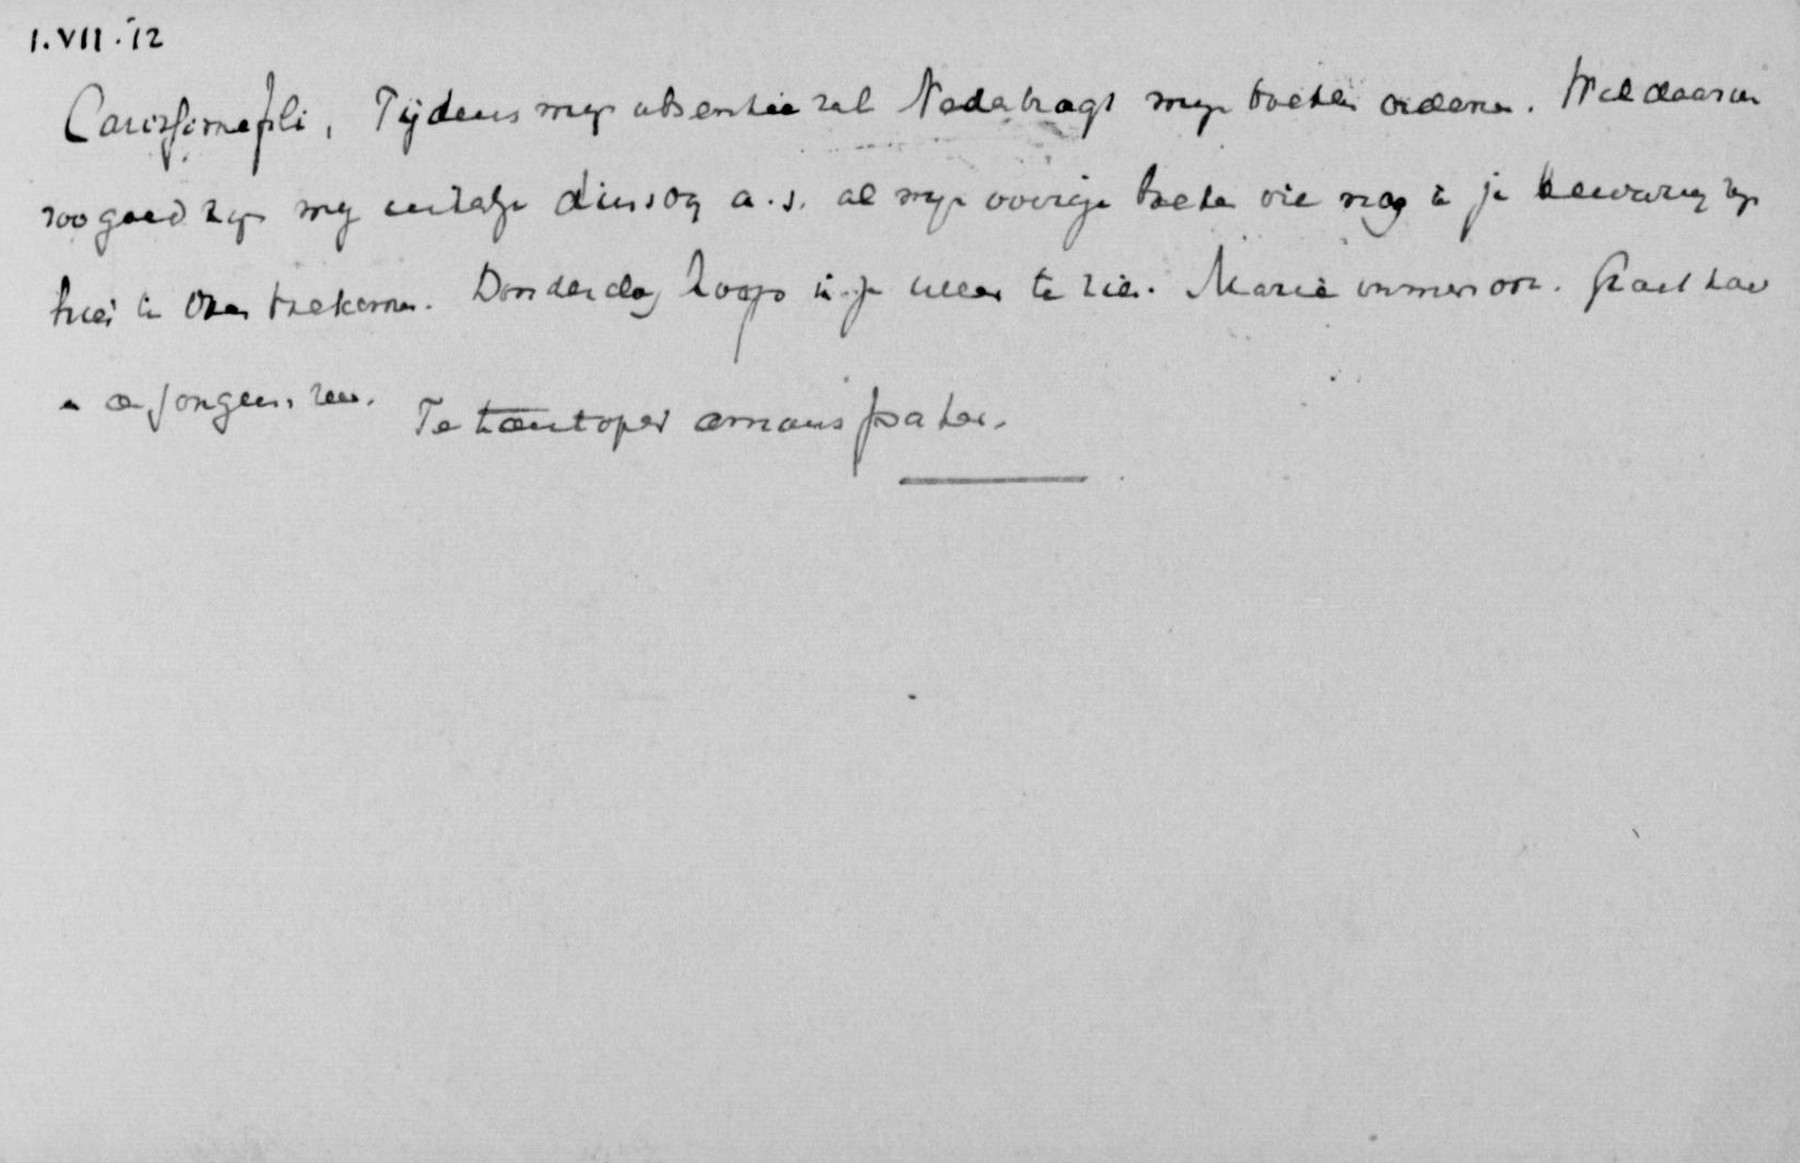 1.VII.12
Carissime fili, Tijdens mijn absentie zal Nedabragt mijn boeken ordenen. Wil daarom
zoo goed zijn mij uiterlijk dinsdag a.s. al mijn overige boeken die nog in je bewaring zijn
hier te doen toekomen. Donderdag hoop ik je weer te zien. Maria immers ook. Groet haar
en de jongens zeer. Te amans pater.